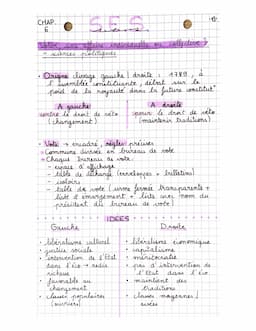 CHAP. 6
SES
Voter : une affaire individuelle ou collective ?
→ sciences politiques
• Origine clivage gauche / droite : 1789, à
l'assemblée constituante, débat sur le
poids de la royauté dans la future constitut°
A gauche
contre le droit de véto
(changement)
A droite
pour le droit de véto
(maintenir traditions)
• Vote → encadré, règles précises
→ Commune divisée en bureau de vote
→ Chaque bureau de vote :
- espace d'affichage
- table de décharge (enveloppes + bulletins)
- isoloirs
- table de vote (urne fermée transparente +
liste d'émargement + liste avec nom du
président du bureau de vote)
IDÉES
Gauche
• libéralisme culturel
• justice sociale
• intervention de l'État
dans l'éco → redis
richesse
• favorable au
changement
• classes populaires
(ouvriers)
Droite
• libéralisme économique
• capitalisme
• méritocratie
• pas d'intervention de
l'État dans l'éco
• maintient des
traditions
• classes moyennes /
aisées